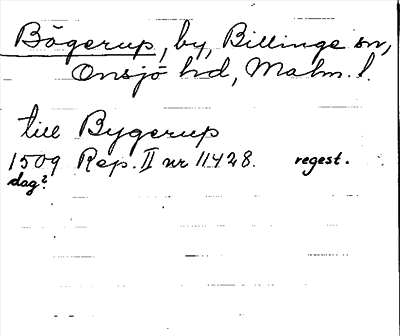 Bögerup, by, Billinge sn,
Onsjö hd, Malm. l.
till Bygerup
1509 Rep. II nr 11428. regest.
dag?